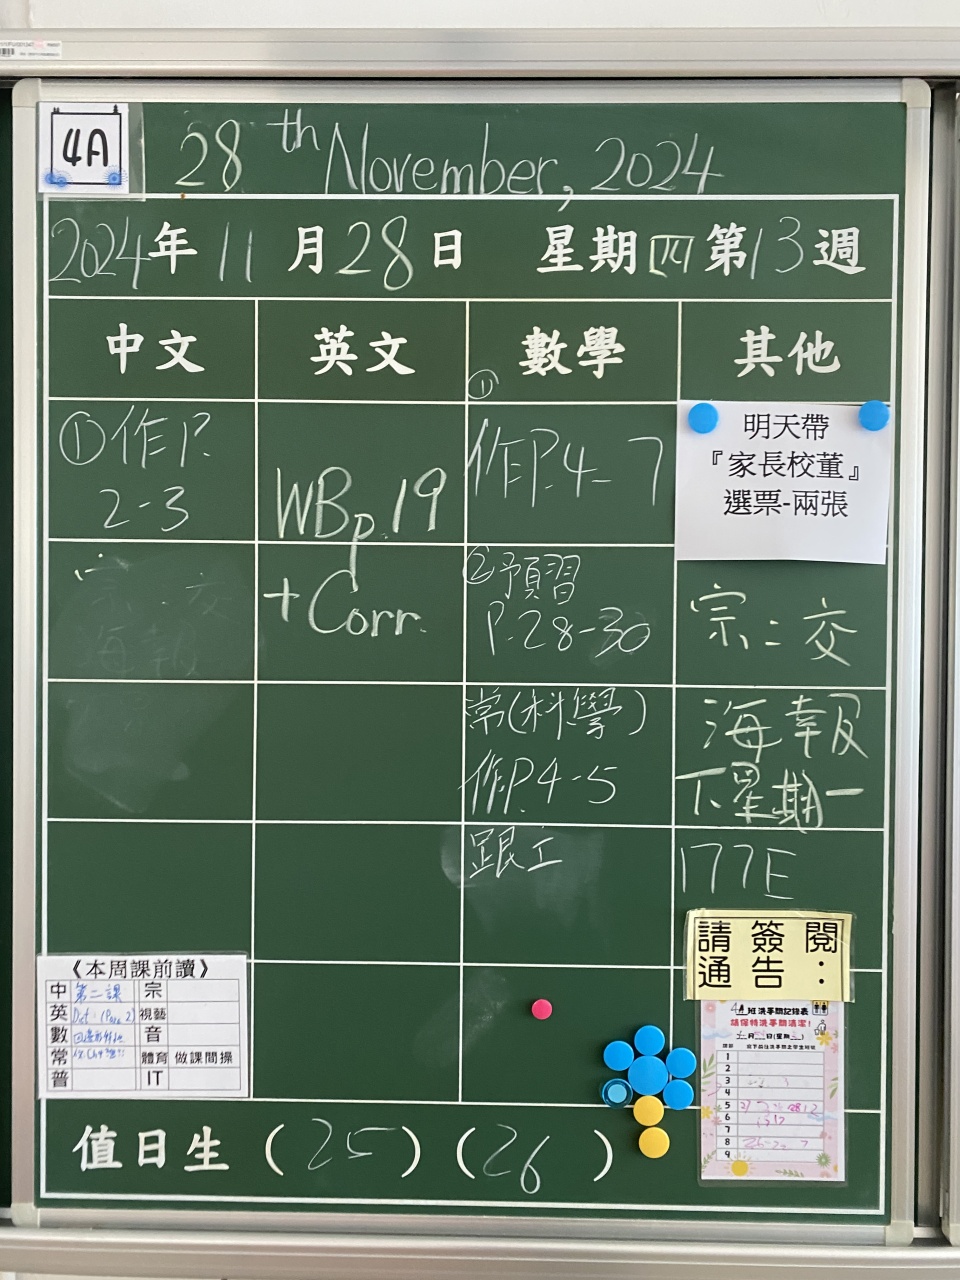 4A
28th November, 2024
2024年11月28日 星期四 第13週
中文 英文 數學 其他
①作P.
2-3
WBp.19
+Corr.
①
作P.4-7
②預習
P.28-30
常(科學)
作P.4-5
跟工
明天帶
『家長校董』
選票-兩張
宗:交
海報
下星期一
177E
請簽閱
通告:
《本周課前讀》
中 第二課 宗
英 視藝
數 音
常 體育 做課間操
普 IT
4A班洗手間記錄表
請保持洗手間清潔!
1
2
3
4
5
6
7
8
9
值日生(25)(26)